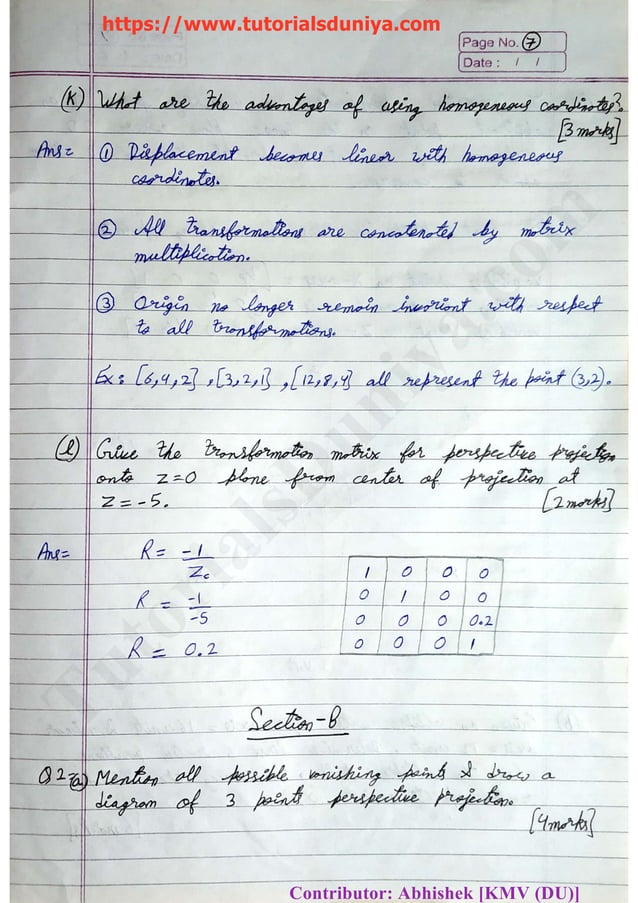 https://www.tutorialsduniya.com
Page No. 7
Date : / /
(K) What are the advantages of using homogeneous coordinates?
[3 marks]
Ans = ① Displacement becomes linear with homogeneous
coordinates.
② All transformations are concatenated by matrix
multiplication.
③ Origin no longer remain invariant with respect
to all transformations.
Ex: [6,4,2], [3,2,1], [12,8,4] all represent the point (3,2).
(l) Give the transformation matrix for perspective projection
onto z=0 plane from center of projection at
z=-5. [2 marks]
Ans = R = -1/Zc
R = -1/-5
R = 0.2
1 0 0 0
0 1 0 0
0 0 0 0.2
0 0 0 1
Section-B
Q2=(a) Mention all possible vanishing points & draw a
diagram of 3 points perspective projection.
[4 marks]
TutorialsDuniya.com
Contributor: Abhishek [KMV (DU)]